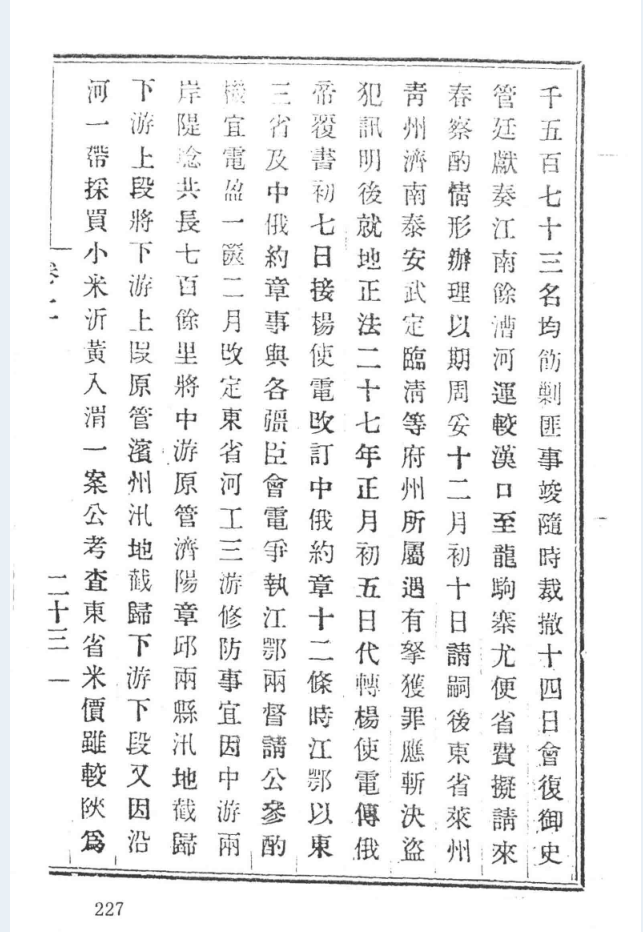 千五百七十三名均飭剿匪事竣隨時裁撤十四日會復御史
管廷獻奏江南餘漕河運較漢口至龍駒寨尤便省費擬請來
春察酌情形辦理以期周妥十二月初十日請嗣後東省萊州
青州濟南泰安武定臨淸等府州所屬遇有拏獲罪應斬決盜
犯訊明後就地正法二十七年正月初五日代轉楊使電傳俄
帝覆書初七日接楊使電改訂中俄約章十二條時江鄂以東
三省及中俄約章事與各疆臣會電爭執江鄂兩督請公參酌
機宜電盈一篋二月改定東省河工三游修防事宜因中游兩
岸隄埝共長七百餘里將中游原管濟陽章邱兩縣汛地截歸
下游上段將下游上段原管濱州汛地截歸下游下段又因沿
河一帶採買小米沂黃入渭一案公考查東省米價雖較陝爲
卷之
二十三
227